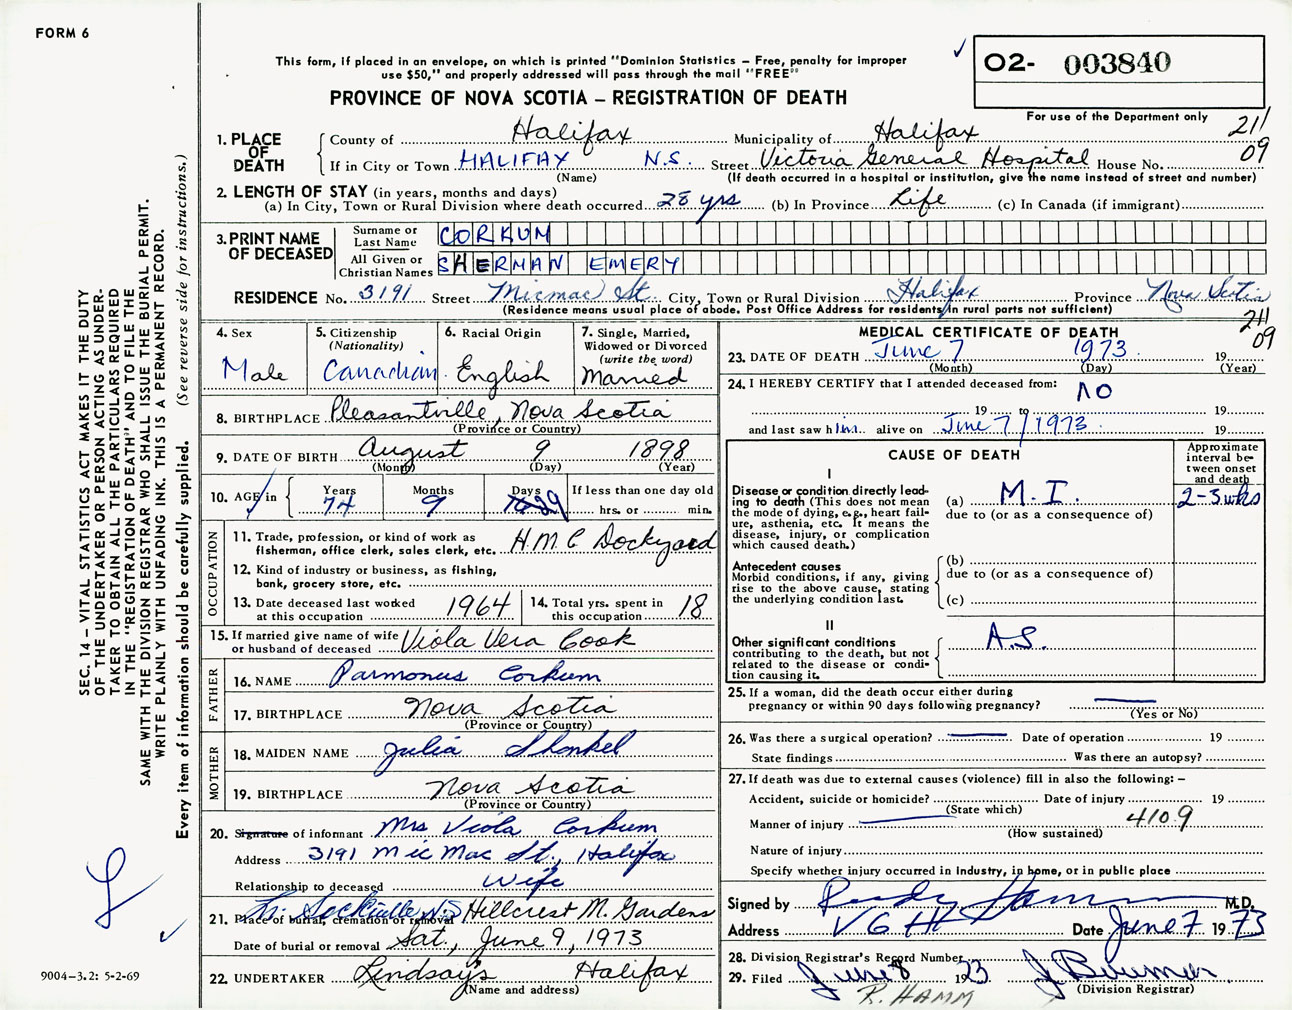 FORM 6
This form, if placed in an envelope, on which is printed "Dominion Statistics – Free, penalty for improper
use $50," and properly addressed will pass through the mail "FREE"
PROVINCE OF NOVA SCOTIA – REGISTRATION OF DEATH
O2- 003840
For use of the Department only
211
09
1. PLACE OF DEATH
County of Halifax Municipality of Halifax
If in City or Town HALIFAX N.S. Street Victoria General Hospital House No.
(Name) (If death occurred in a hospital or institution, give the name instead of street and number)
2. LENGTH OF STAY (in years, months and days)
(a) In City, Town or Rural Division where death occurred 28 yrs (b) In Province Life (c) In Canada (if immigrant)
3. PRINT NAME OF DECEASED
Surname or Last Name CORKUM
All Given or Christian Names SHERMAN EMERY
RESIDENCE No. 3191 Street Micmac St. City, Town or Rural Division Halifax Province Nova Scotia
(Residence means usual place of abode. Post Office Address for residents in rural parts not sufficient)
211
09
4. Sex
Male
5. Citizenship
(Nationality)
Canadian
6. Racial Origin
English
7. Single, Married,
Widowed or Divorced
(write the word)
Married
8. BIRTHPLACE Pleasantville, Nova Scotia
(Province or Country)
9. DATE OF BIRTH August 9 1898
(Month) (Day) (Year)
10. AGE in
Years Months Days If less than one day old
74 9 29 hrs. or min.
OCCUPATION
11. Trade, profession, or kind of work as
fisherman, office clerk, sales clerk, etc. H.M.C Dockyard
12. Kind of industry or business, as fishing,
bank, grocery store, etc.
13. Date deceased last worked
at this occupation 1964
14. Total yrs. spent in
this occupation 18
15. If married give name of wife
or husband of deceased Viola Vera Cook
FATHER
16. NAME Parmonus Corkum
17. BIRTHPLACE Nova Scotia
(Province or Country)
MOTHER
18. MAIDEN NAME Julia
19. BIRTHPLACE Nova Scotia
(Province or Country)
20. Signature of informant Mrs Viola Corkum
Address 3191 Mic Mac St., Halifax
Relationship to deceased Wife
Sackville NS
21. Place of burial, cremation or removal Hillcrest M. Gardens
Date of burial or removal Sat., June 9, 1973
22. UNDERTAKER Lindsay's Halifax
(Name and address)
MEDICAL CERTIFICATE OF DEATH
23. DATE OF DEATH June 7 1973 19
(Month) (Day) (Year)
24. I HEREBY CERTIFY that I attended deceased from: NO
19 to 19
and last saw him alive on June 7/1973 19
CAUSE OF DEATH
Approximate
interval be-
tween onset
and death
I
Disease or condition directly lead-
ing to death (This does not mean
the mode of dying, e.g., heart fail-
ure, asthenia, etc. It means the
disease, injury, or complication
which caused death.)
(a) M.I. 2-3 wks
due to (or as a consequence of)
Antecedent causes
Morbid conditions, if any, giving
rise to the above cause, stating
the underlying condition last.
(b)
due to (or as a consequence of)
(c)
II
Other significant conditions
contributing to the death, but not
related to the disease or condi-
tion causing it.
A.S.
25. If a woman, did the death occur either during
pregnancy or within 90 days following pregnancy?
(Yes or No)
26. Was there a surgical operation? Date of operation 19
State findings Was there an autopsy?
27. If death was due to external causes (violence) fill in also the following: –
Accident, suicide or homicide? Date of injury 19
(State which)
Manner of injury 4109
(How sustained)
Nature of injury
Specify whether injury occurred in industry, in home, or in public place
Signed by M.D.
Address V G H Date June 7 1973
28. Division Registrar's Record Number
29. Filed June 8 1973
(Division Registrar)
R. HAMM
SEC. 14 – VITAL STATISTICS ACT MAKES IT THE DUTY
OF THE UNDERTAKER OR PERSON ACTING AS UNDER-
TAKER TO OBTAIN ALL THE PARTICULARS REQUIRED
IN THE "REGISTRATION OF DEATH" AND TO FILE THE
SAME WITH THE DIVISION REGISTRAR WHO SHALL ISSUE THE BURIAL PERMIT.
WRITE PLAINLY WITH UNFADING INK. THIS IS A PERMANENT RECORD.
Every item of information should be carefully supplied. (See reverse side for instructions.)
9004-3.2: 5-2-69